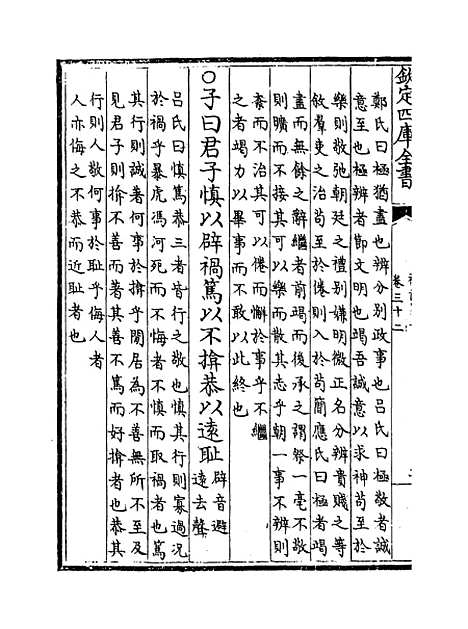 欽定四庫全書
卷三十二
鄭氏曰極猶盡也辨分别政事也吕氏曰極敬者誠
意至也極辨者節文明也竭吾誠意以求神苟至於
樂則敬弛朝廷之禮别嫌明微正名分辨貴賤之等
敘羣吏之治苟至於倦則入於苟簡應氏曰極者竭
盡而無餘之辭繼者前竭而後承之謂祭一毫不敬
則曠而不接其可以繼樂而散其志乎朝一事不辨則
紊而不治其可以倦而懈於事乎不繼
之者竭力以畢事而不敢以此終也
○子曰君子慎以辟禍篤以不揜恭以遠耻辟音避遠去聲
吕氏曰慎篤恭三者皆行之敬也慎其行則寡過況
於禍乎暴虎馮河死而不悔者不慎而取禍者也篤
其行則誠著何事於揜乎閒居為不善無所不至及
見君子則揜不善而著其善不篤而好揜者也恭其
行則人敬何事於耻乎侮人者
人亦侮之不恭而近耻者也